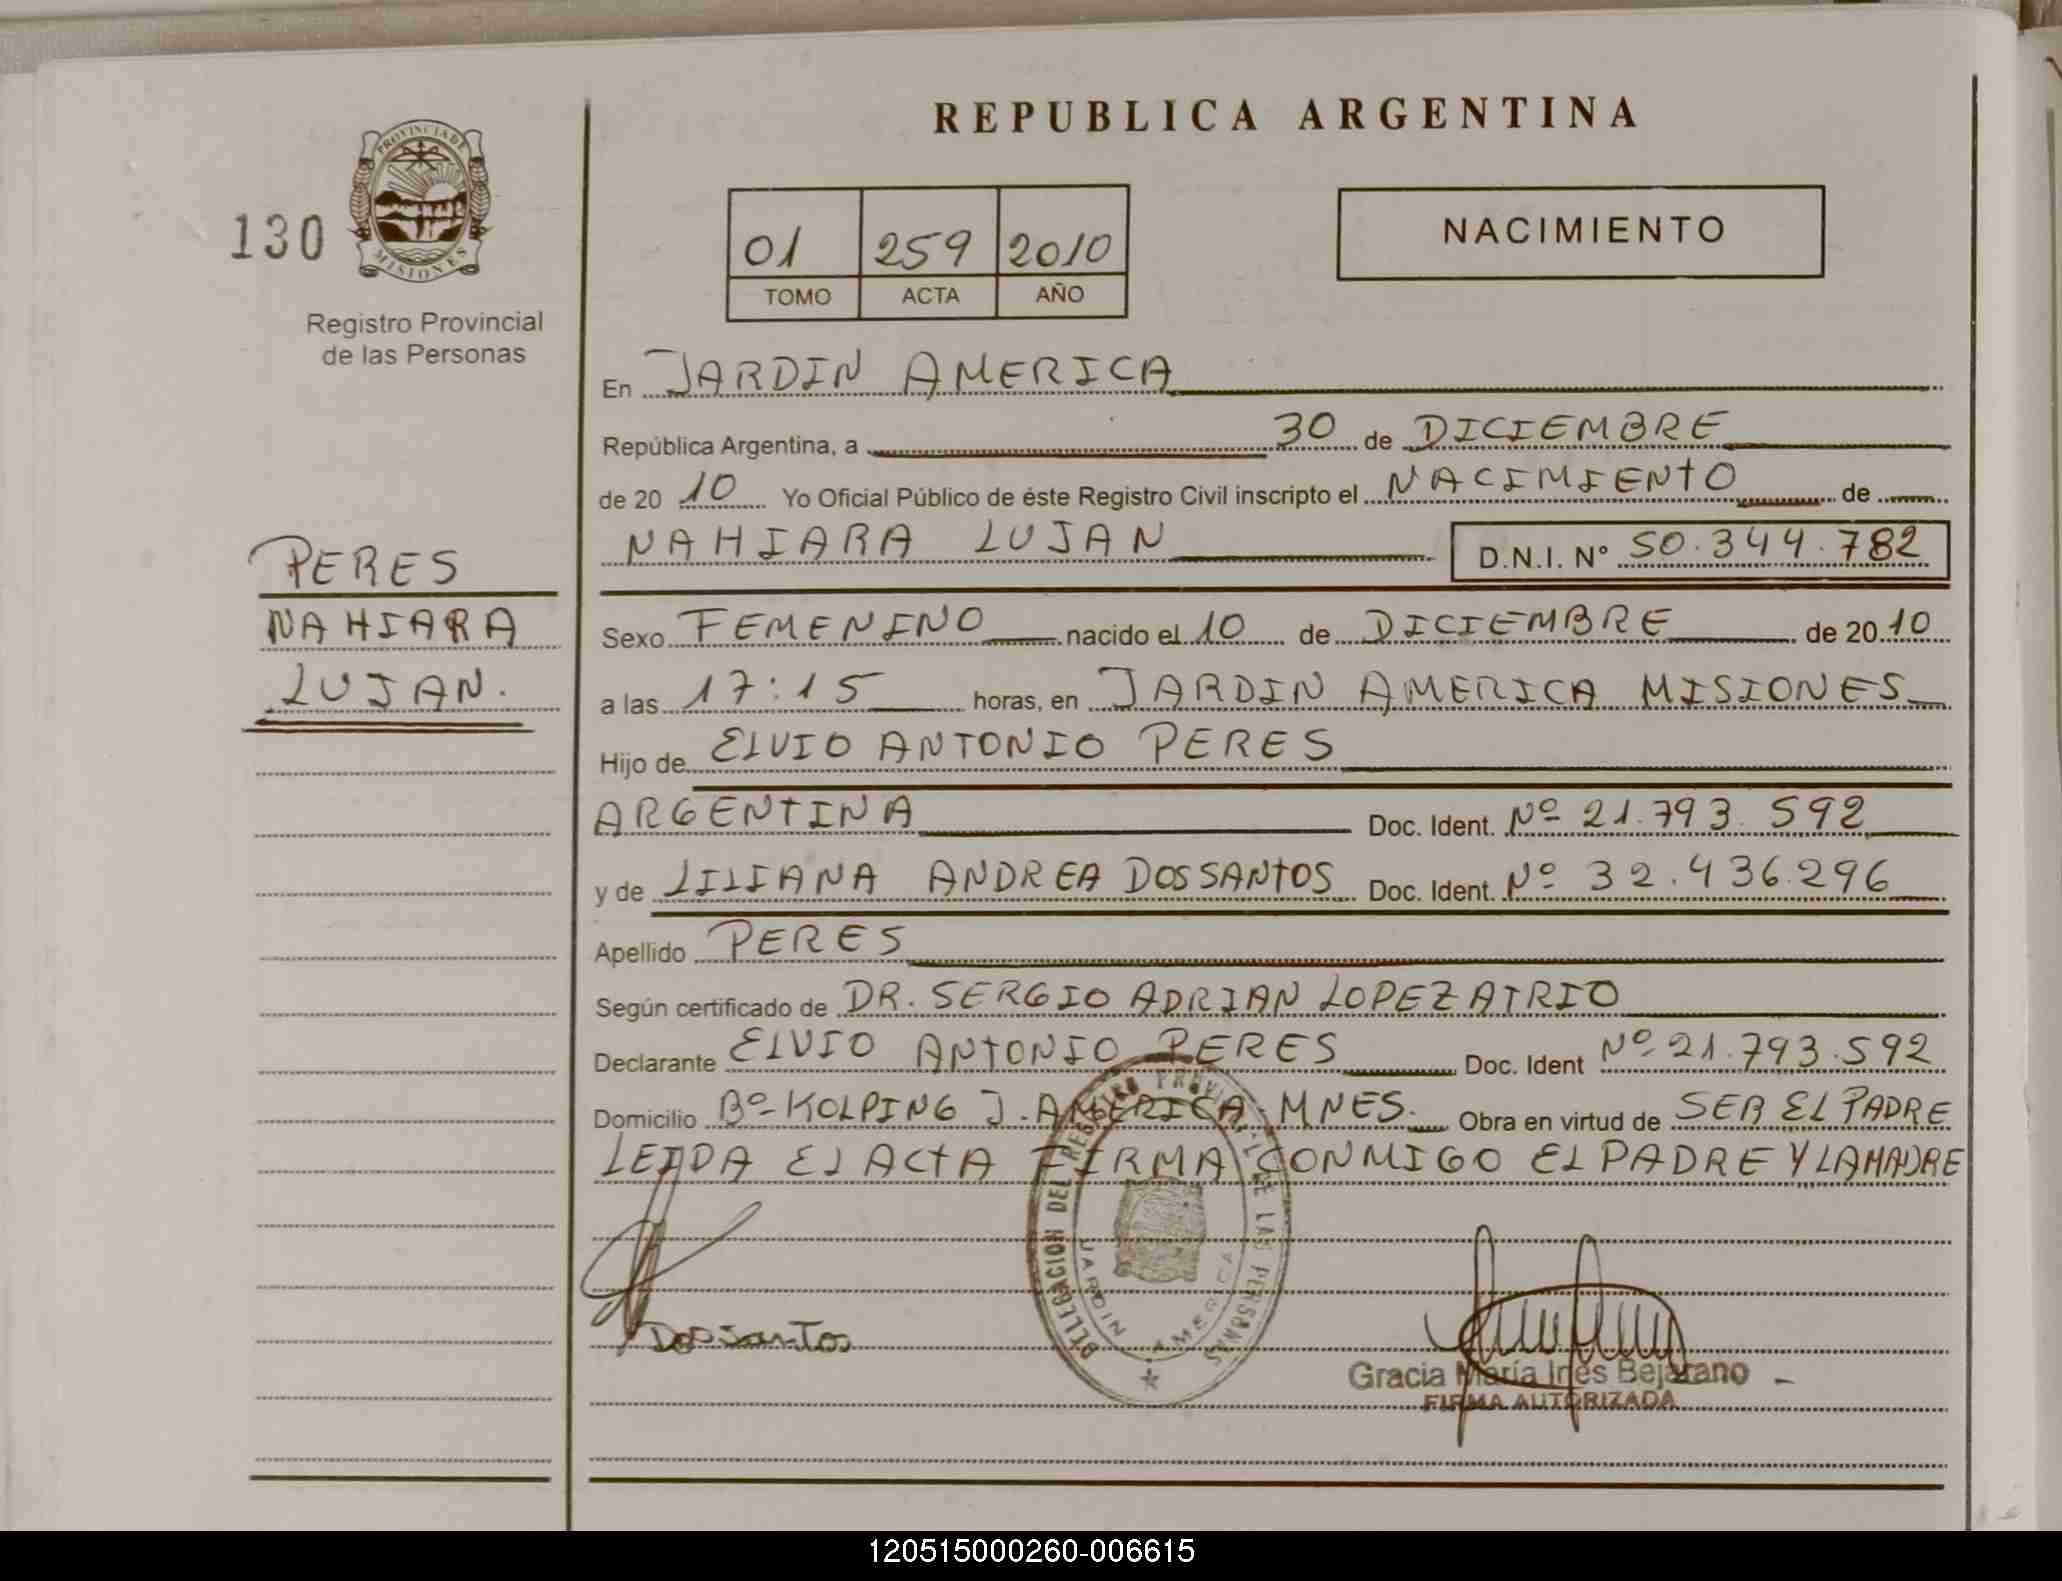 REPUBLICA ARGENTINA
PROVINCIA DE
MISIONES
130
Registro Provincial
de las Personas
01 259 2010
TOMO ACTA AÑO
NACIMIENTO
PERES
NAHIARA
LUJAN.
En JARDIN AMERICA
República Argentina, a 30 de DICIEMBRE
de 20 10 Yo Oficial Público de éste Registro Civil inscripto el NACIMIENTO de
NAHIARA LUJAN D.N.I. N° 50.344.782
Sexo FEMENINO nacido el 10 de DICIEMBRE de 20 10
a las 17:15 horas, en JARDIN AMERICA MISIONES
Hijo de ELVIO ANTONIO PERES
ARGENTINA Doc. Ident. Nº 21.793.592
y de LILIANA ANDREA DOSSANTOS Doc. Ident. Nº 32.436.296
Apellido PERES
Según certificado de DR. SERGIO ADRIAN LOPEZ ATRIO
Declarante ELVIO ANTONIO PERES Doc. Ident Nº 21.793.592
Domicilio Bº KOLPING J. AMERICA-MNES. Obra en virtud de SER EL PADRE
LEIDA EL ACTA FIRMA CONMIGO EL PADRE Y LA MADRE
DELEGACION DEL REGISTRO PROVINCIAL DE LAS PERSONAS
JARDIN AMERICA
Dossantos
Gracia María Inés Bejarano
FIRMA AUTORIZADA
120515000260-006615